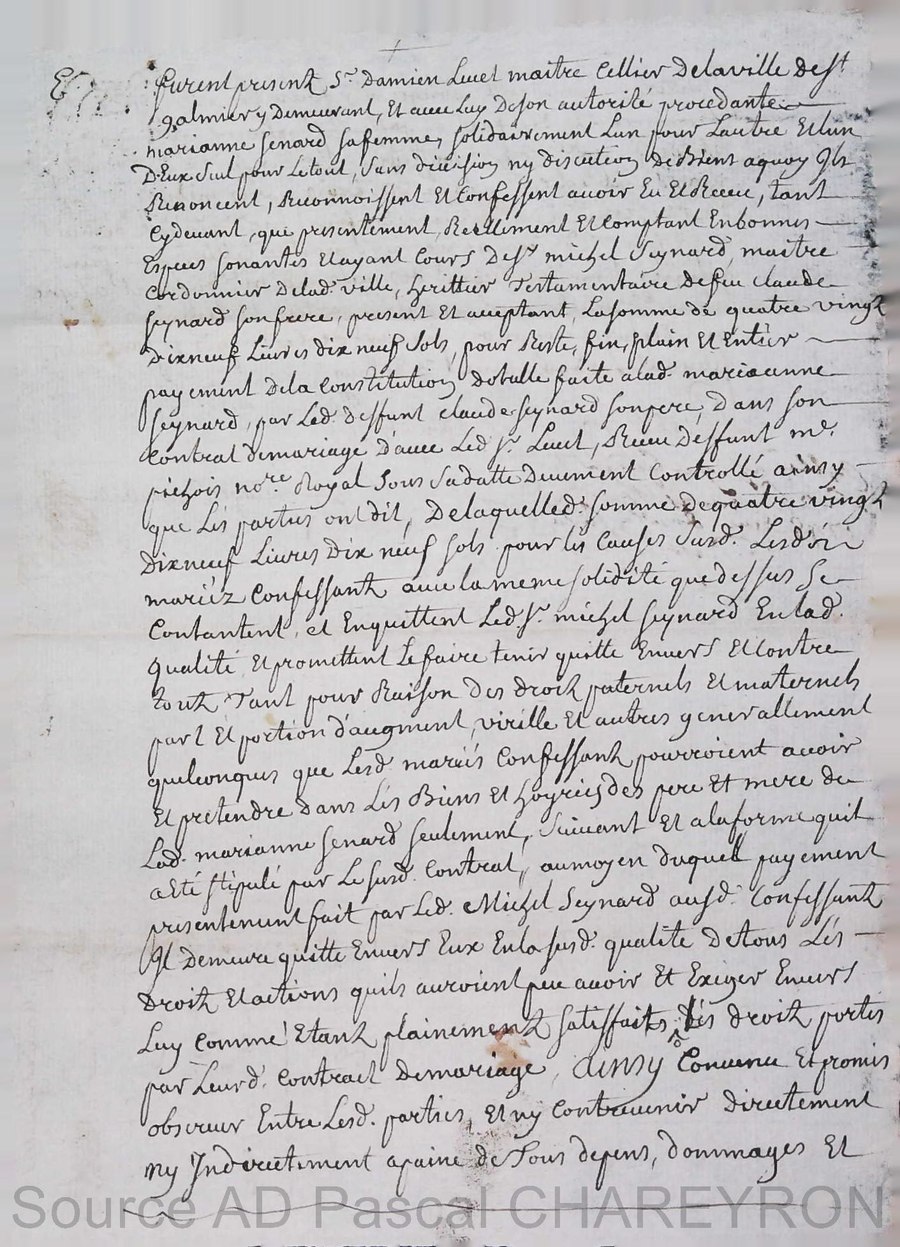 furent present Sr Damien Luiet maitre Cellier Delaville de St
galmier y Demeurant, Et avec Luy De son autorité procedante
marianne senard sa femme, solidairement Lun pour Lautre Et lun
D'Eux seul pour Le tout, sans division ny discution de Bient a quoy Ils
Renoncent, Reconnoissent Et Confessent avoir Eu Et Receu, tant
Cydevant, que presentement, Reellement Et Comptant En bonnes
Especes sonantes Et ayant Cours de Sr michel seynard, maitre
Cordonnier de lad. ville, herittier Testamentaire de feu Claude
seynard son frere, present Et acceptant, La somme de quatre vingt
dixneuf Livres dix neuf sols, pour Reste, fin, plain Et Entier
payement de la Constitution dotalle faite a lad. marianne
seynard, par Led. deffunt claude seynard son pere, dans son
Contrat de mariage d'avec Led Sr. Luiet, Receu deffunt me.
nore Royal sous sa datte Deuement Controllé ainsy
que Les parties ont dit, De laquelled. somme de quatre vingt
dixneuf Livres Dix neuf sols pour les Causes susd. Lesd.
mariéz Confessant avec la meme solidité que dessus se
Contantent, et Enquittent Led Sr. michel seynard En lad.
qualité, Et promettent Le faire tenir quitte Envers Et Contre
tout Tant pour Raison des droit paternels Et maternels
part Et portion d'augment, virille Et autres generallement
quelconques que Lesd. mariés Confessant pourroient avoir
Et pretendre dans Les Biens Et hoyries des pere Et mere de
Lad. marianne senard seulement, suivant Et a la forme quil
a Eté stipulé par Le susd. Contrat, au moyen duquel payement
presentement fait par Led. Michel Seynard ausd. Confessant
Il Demeure quitte Envers Eux En la susd. qualité de tous Les
Droit Et actions quils auroient peu avoir Et Exiger Envers
Luy Comme Etant plainement satisfaits des droit portés
par Leurd. Contract de mariage, ainsy Convenu Et promis
observer Entre Lesd. parties, Et ny Contrevenir directement
ny Indirectement a paine de Tous depens, dommages Et
Source AD Pascal CHAREYRON